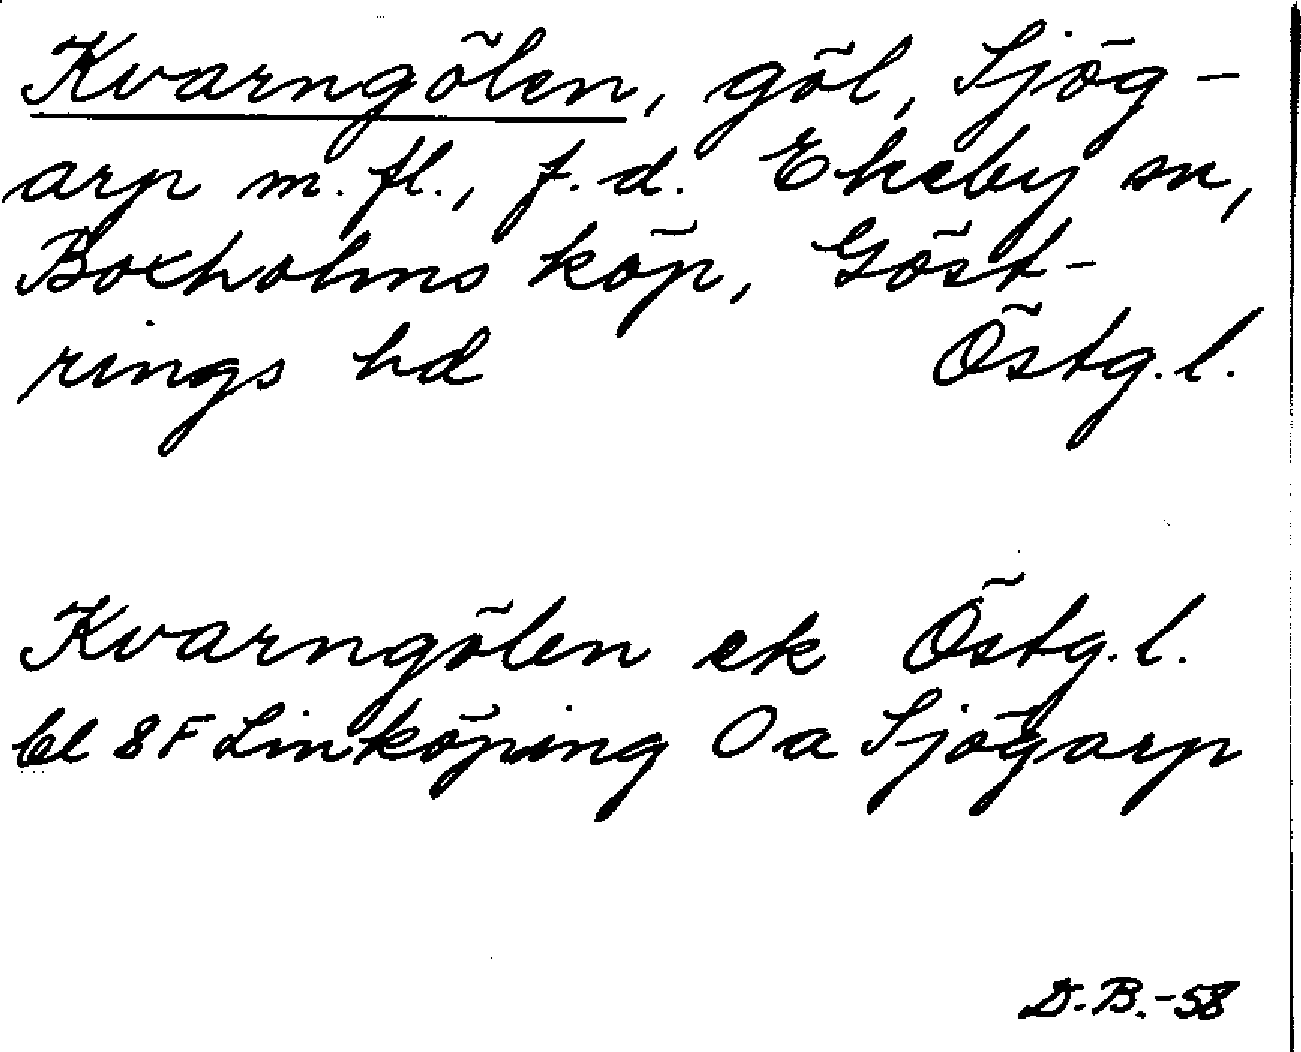 Kvarngölen, göl, Sjög-
arp m.fl., f.d. Ekeby sn,
Boxholms köp, Göst-
rings hd Östg.l.
Kvarngölen ek Östg.l.
bl 8F Linköping Oa Sjögarp
D.B.-58